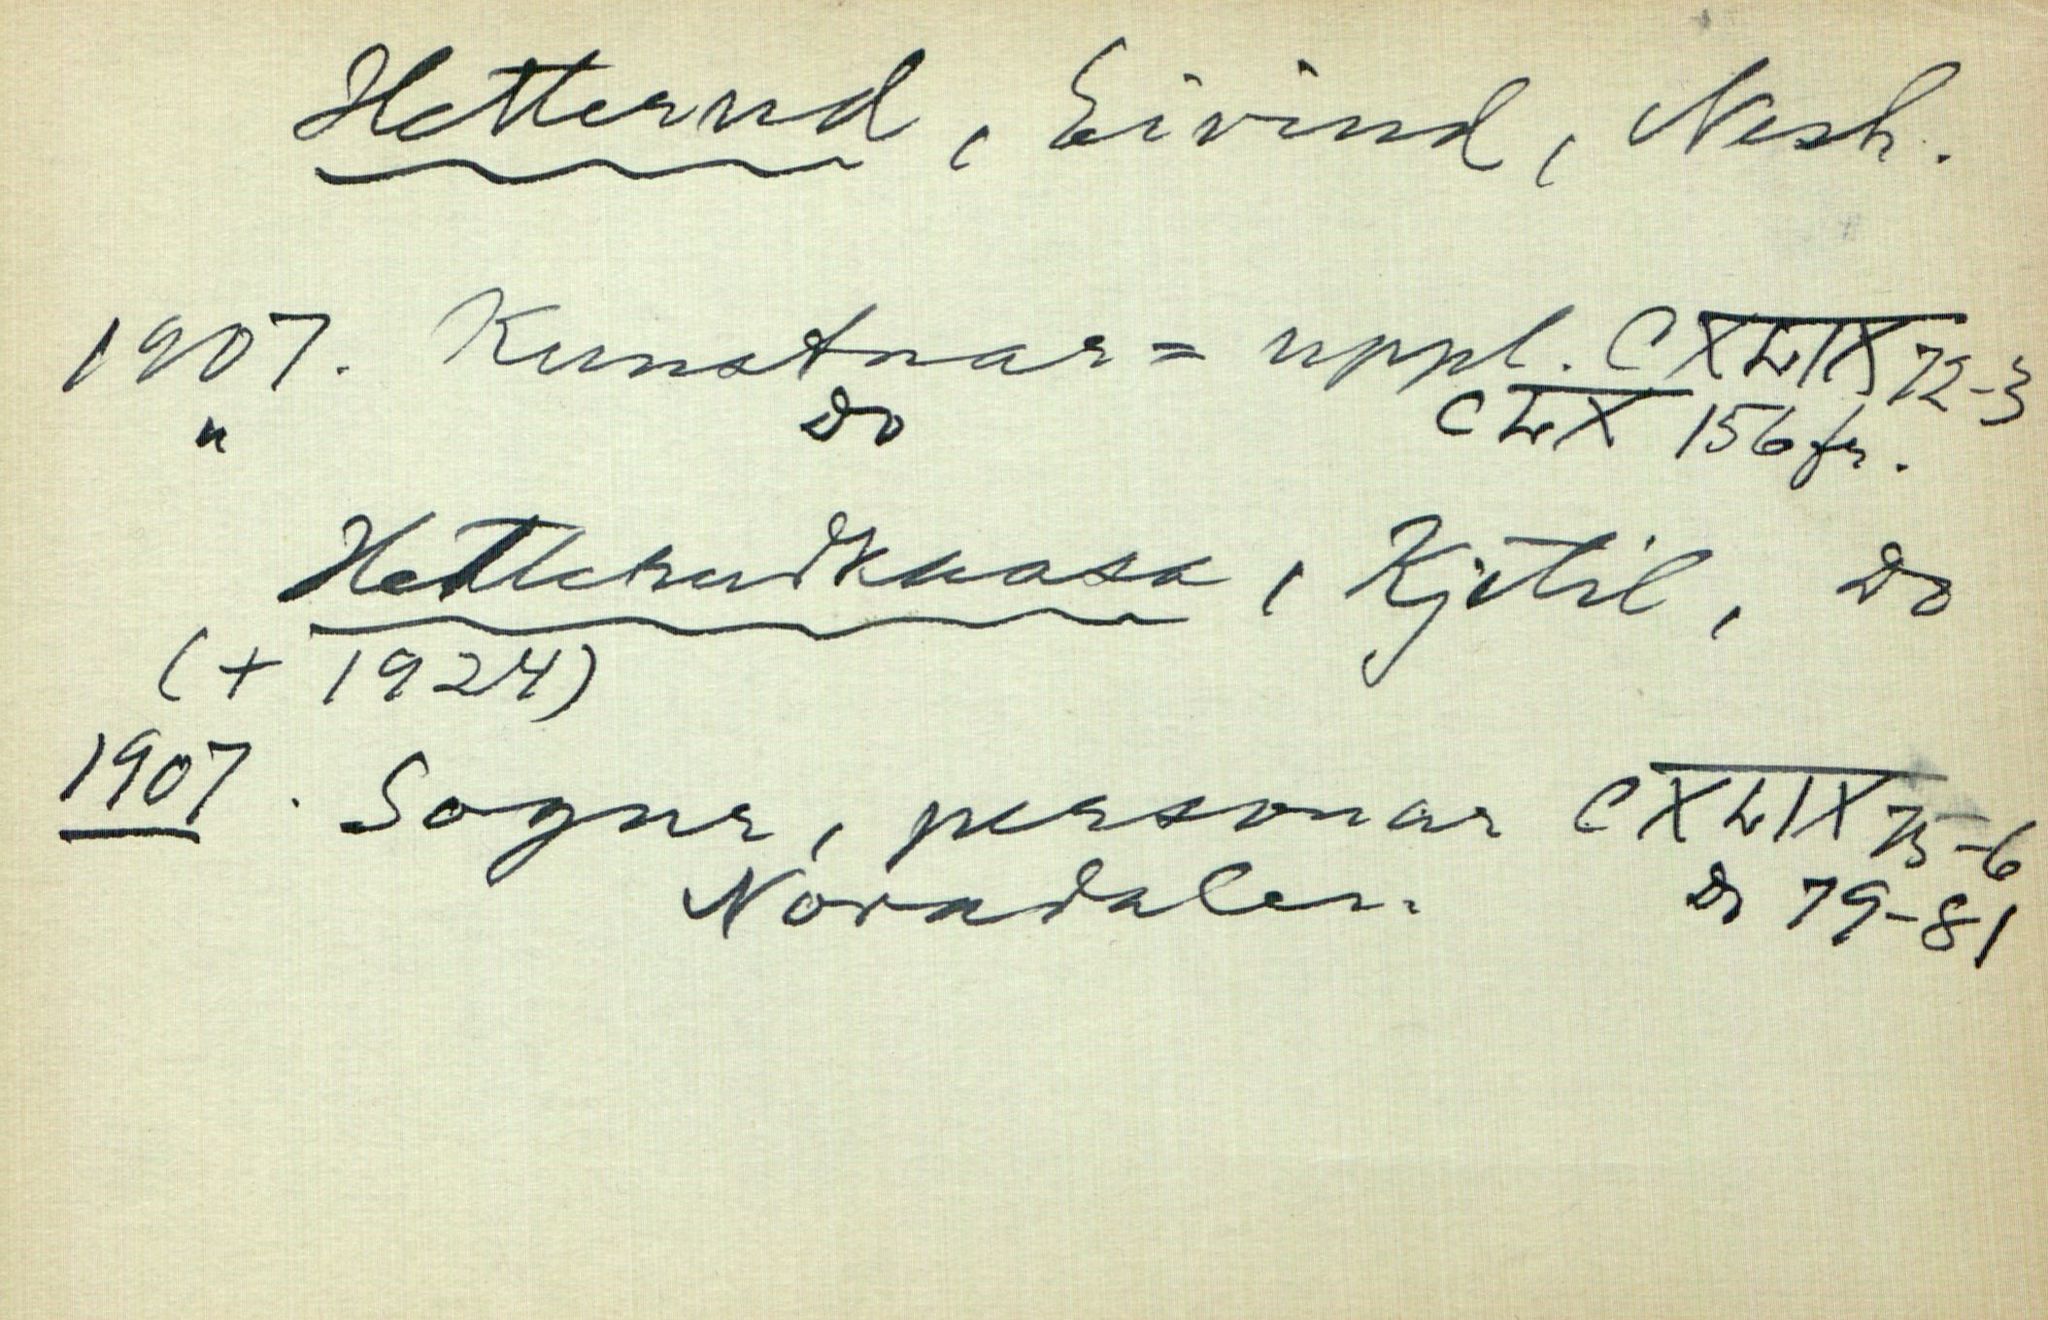 Hetterud, Eivind, Nesh.
1907. Kunstnar= uppl. CXLIX 72-3
" Do CLX 156 fr.
Kjetil, Do
(+ 1924)
1907. Sogur, personar CXLIX 75-6
Noradalen. Do 79-81